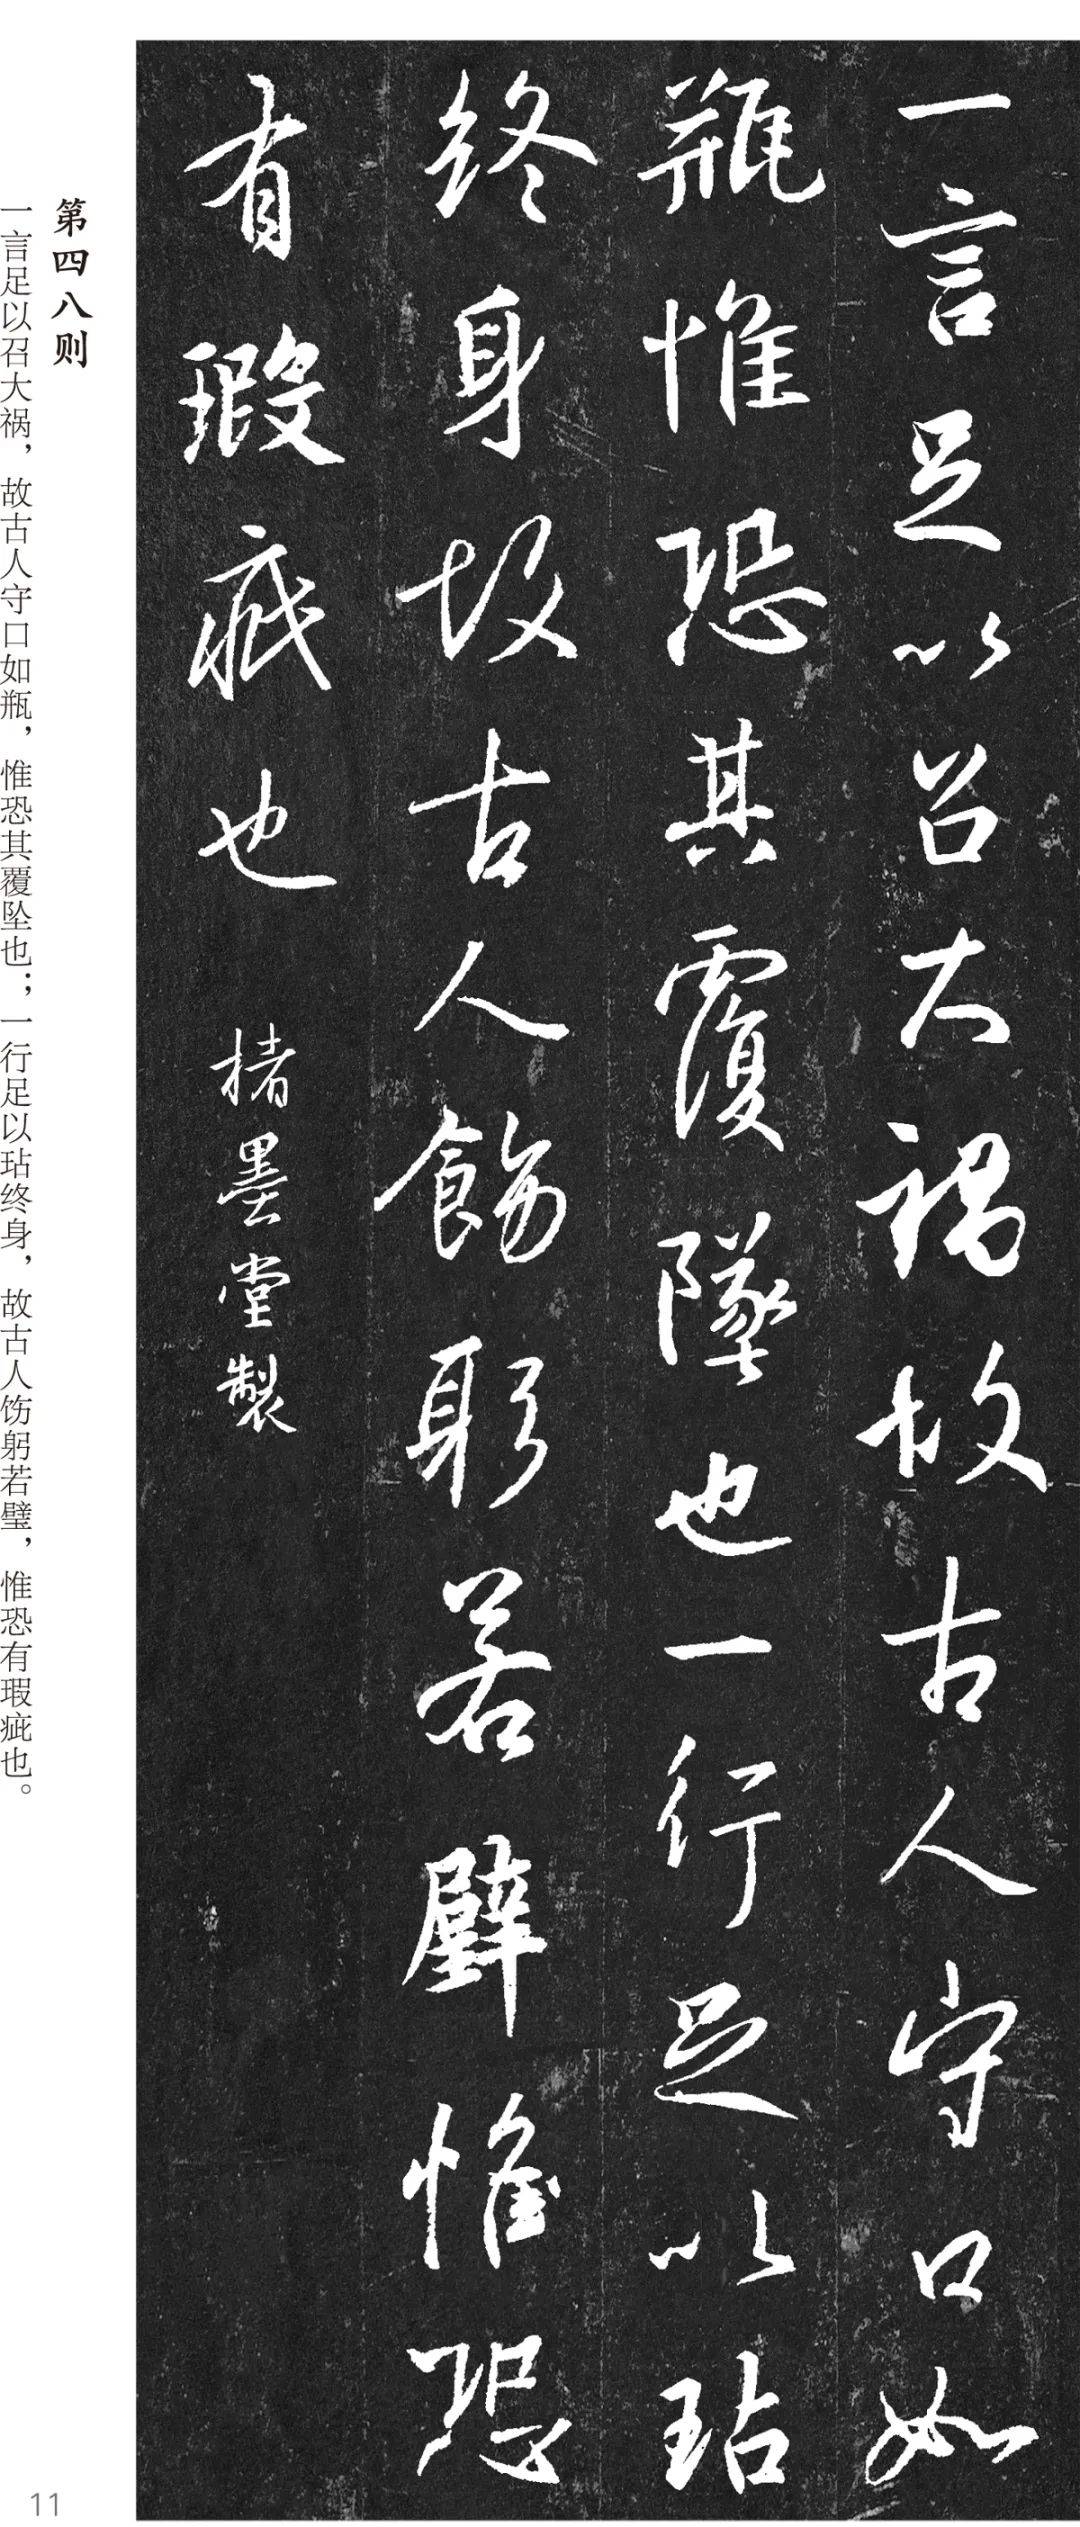 一言足以召大禍故古人守口如
瓶惟恐其覆墜也一行足以玷
終身故古人飭躬若璧惟恐
有瑕疵也 楮墨堂製
第四八则
一言足以召大祸，故古人守口如瓶，惟恐其覆坠也；一行足以玷终身，故古人饬躬若璧，惟恐有瑕疵也。
11